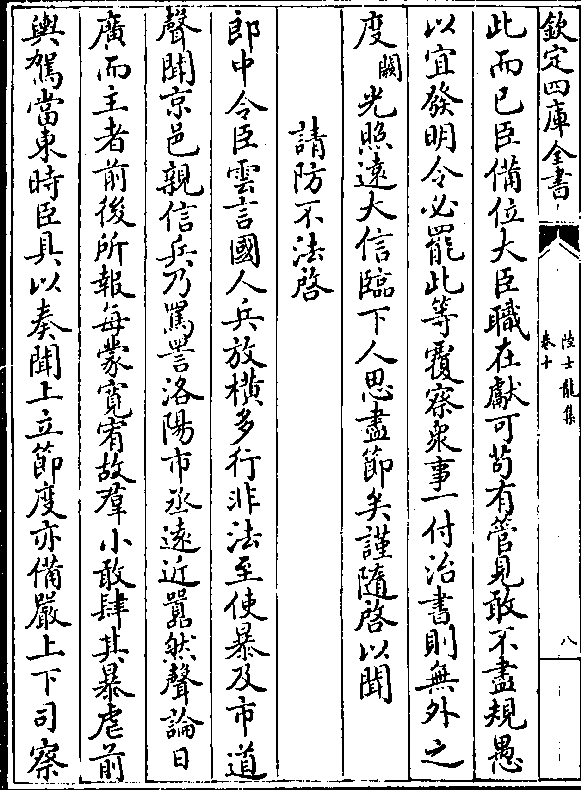 欽定四庫全書
陸士龍集
卷十
八
此而已臣備位大臣職在獻可茍有管見敢不盡規愚
以宜發明令必罷此等覆察衆事一付治書則無外之
度闕光照遠大信臨下人思盡節矣謹隨啓以聞
請防不法啓
郎中令臣雲言國人兵放橫多行非法至使暴及市道
聲聞京邑親信兵乃罵詈洛陽市丞遠近囂然聲論日
廣而主者前後所報每蒙寛宥故羣小敢肆其暴虐前
輿駕當東時臣具以奏聞上立節度亦備嚴上下司察